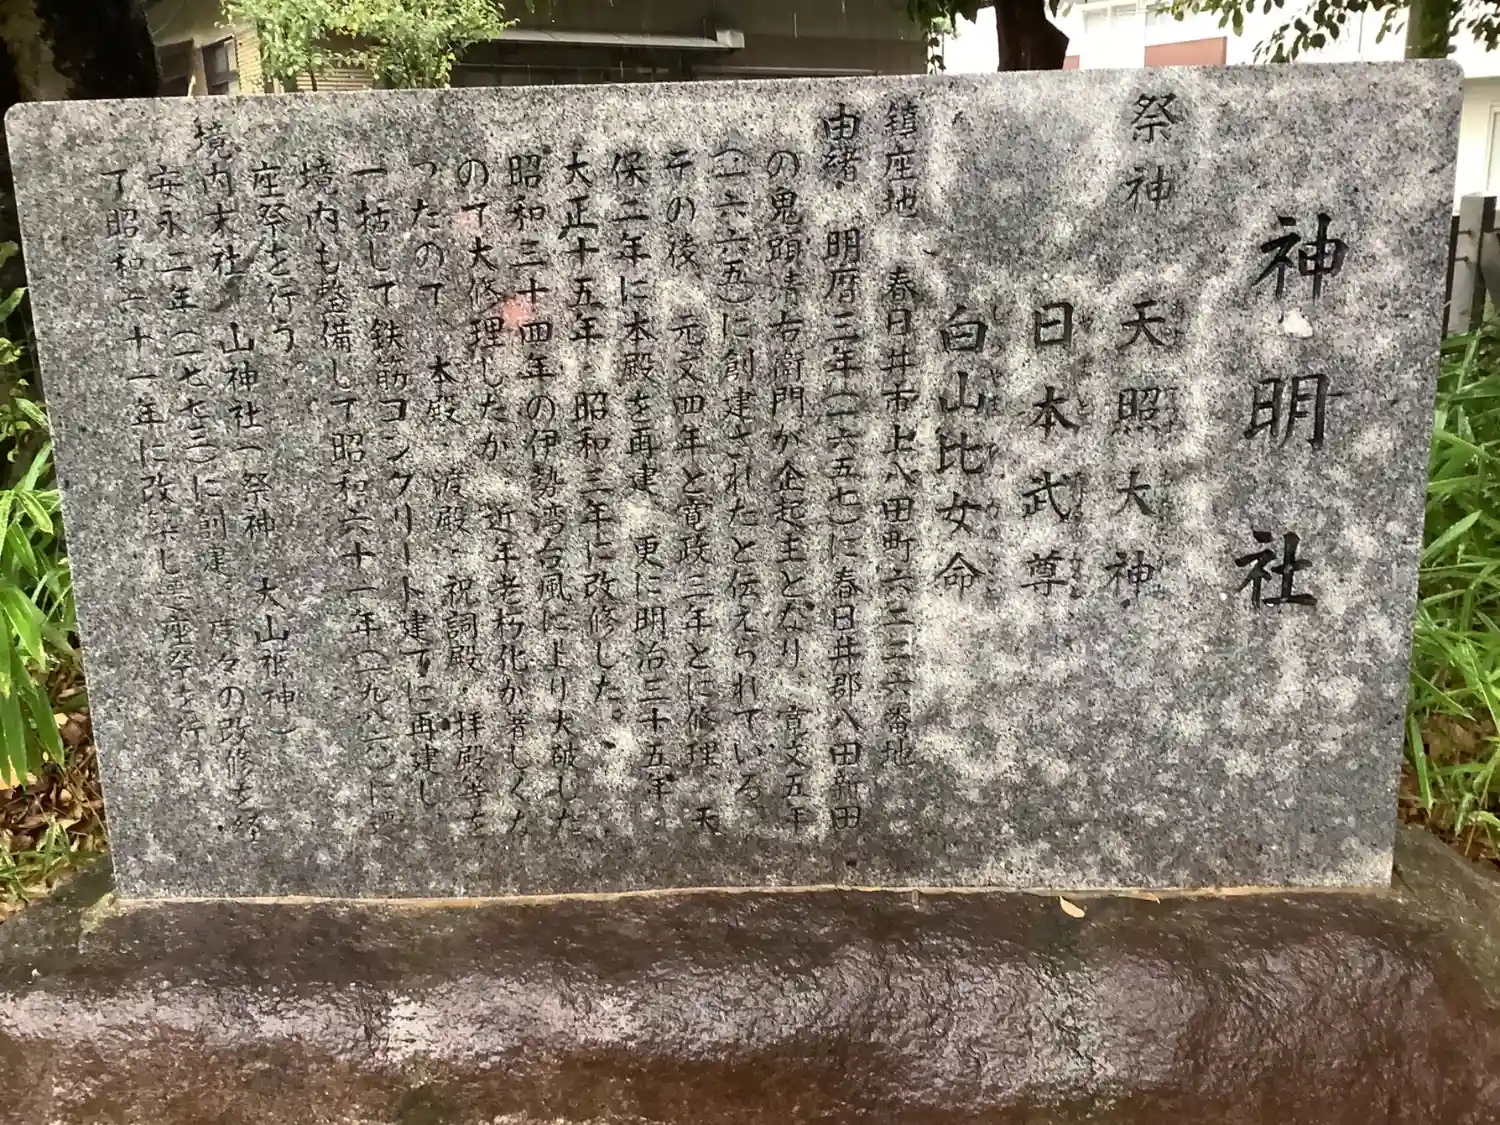 神明社
祭神 天照大神
日本武尊
白山比女命
鎮座地 春日井市上八田町六二三六番地
由緒 明暦三年(一六五七)に春日井郡八田新田
の鬼頭清右衛門が企起主となり、寛文五年
(一六六五)に創建されたと伝えられている。
その後、元文四年と寛政二年とに修理、天
保二年に本殿を再建、更に明治三十五年、
大正十五年、昭和三年に改修した。
昭和三十四年の伊勢湾台風により大破した
ので大修理したが、近年老朽化が著しくな
ったので、本殿、渡殿、祝詞殿、拝殿等を
一括して鉄筋コンクリート建てに再建し、
境内も整備して昭和六十一年(一九八六)に遷
座祭を行う。
境内末社 山神社(祭神 大山祇神)
安永二年(一七七三)に創建、度々の改修を経
て昭和六十一年に改築し遷座祭を行う